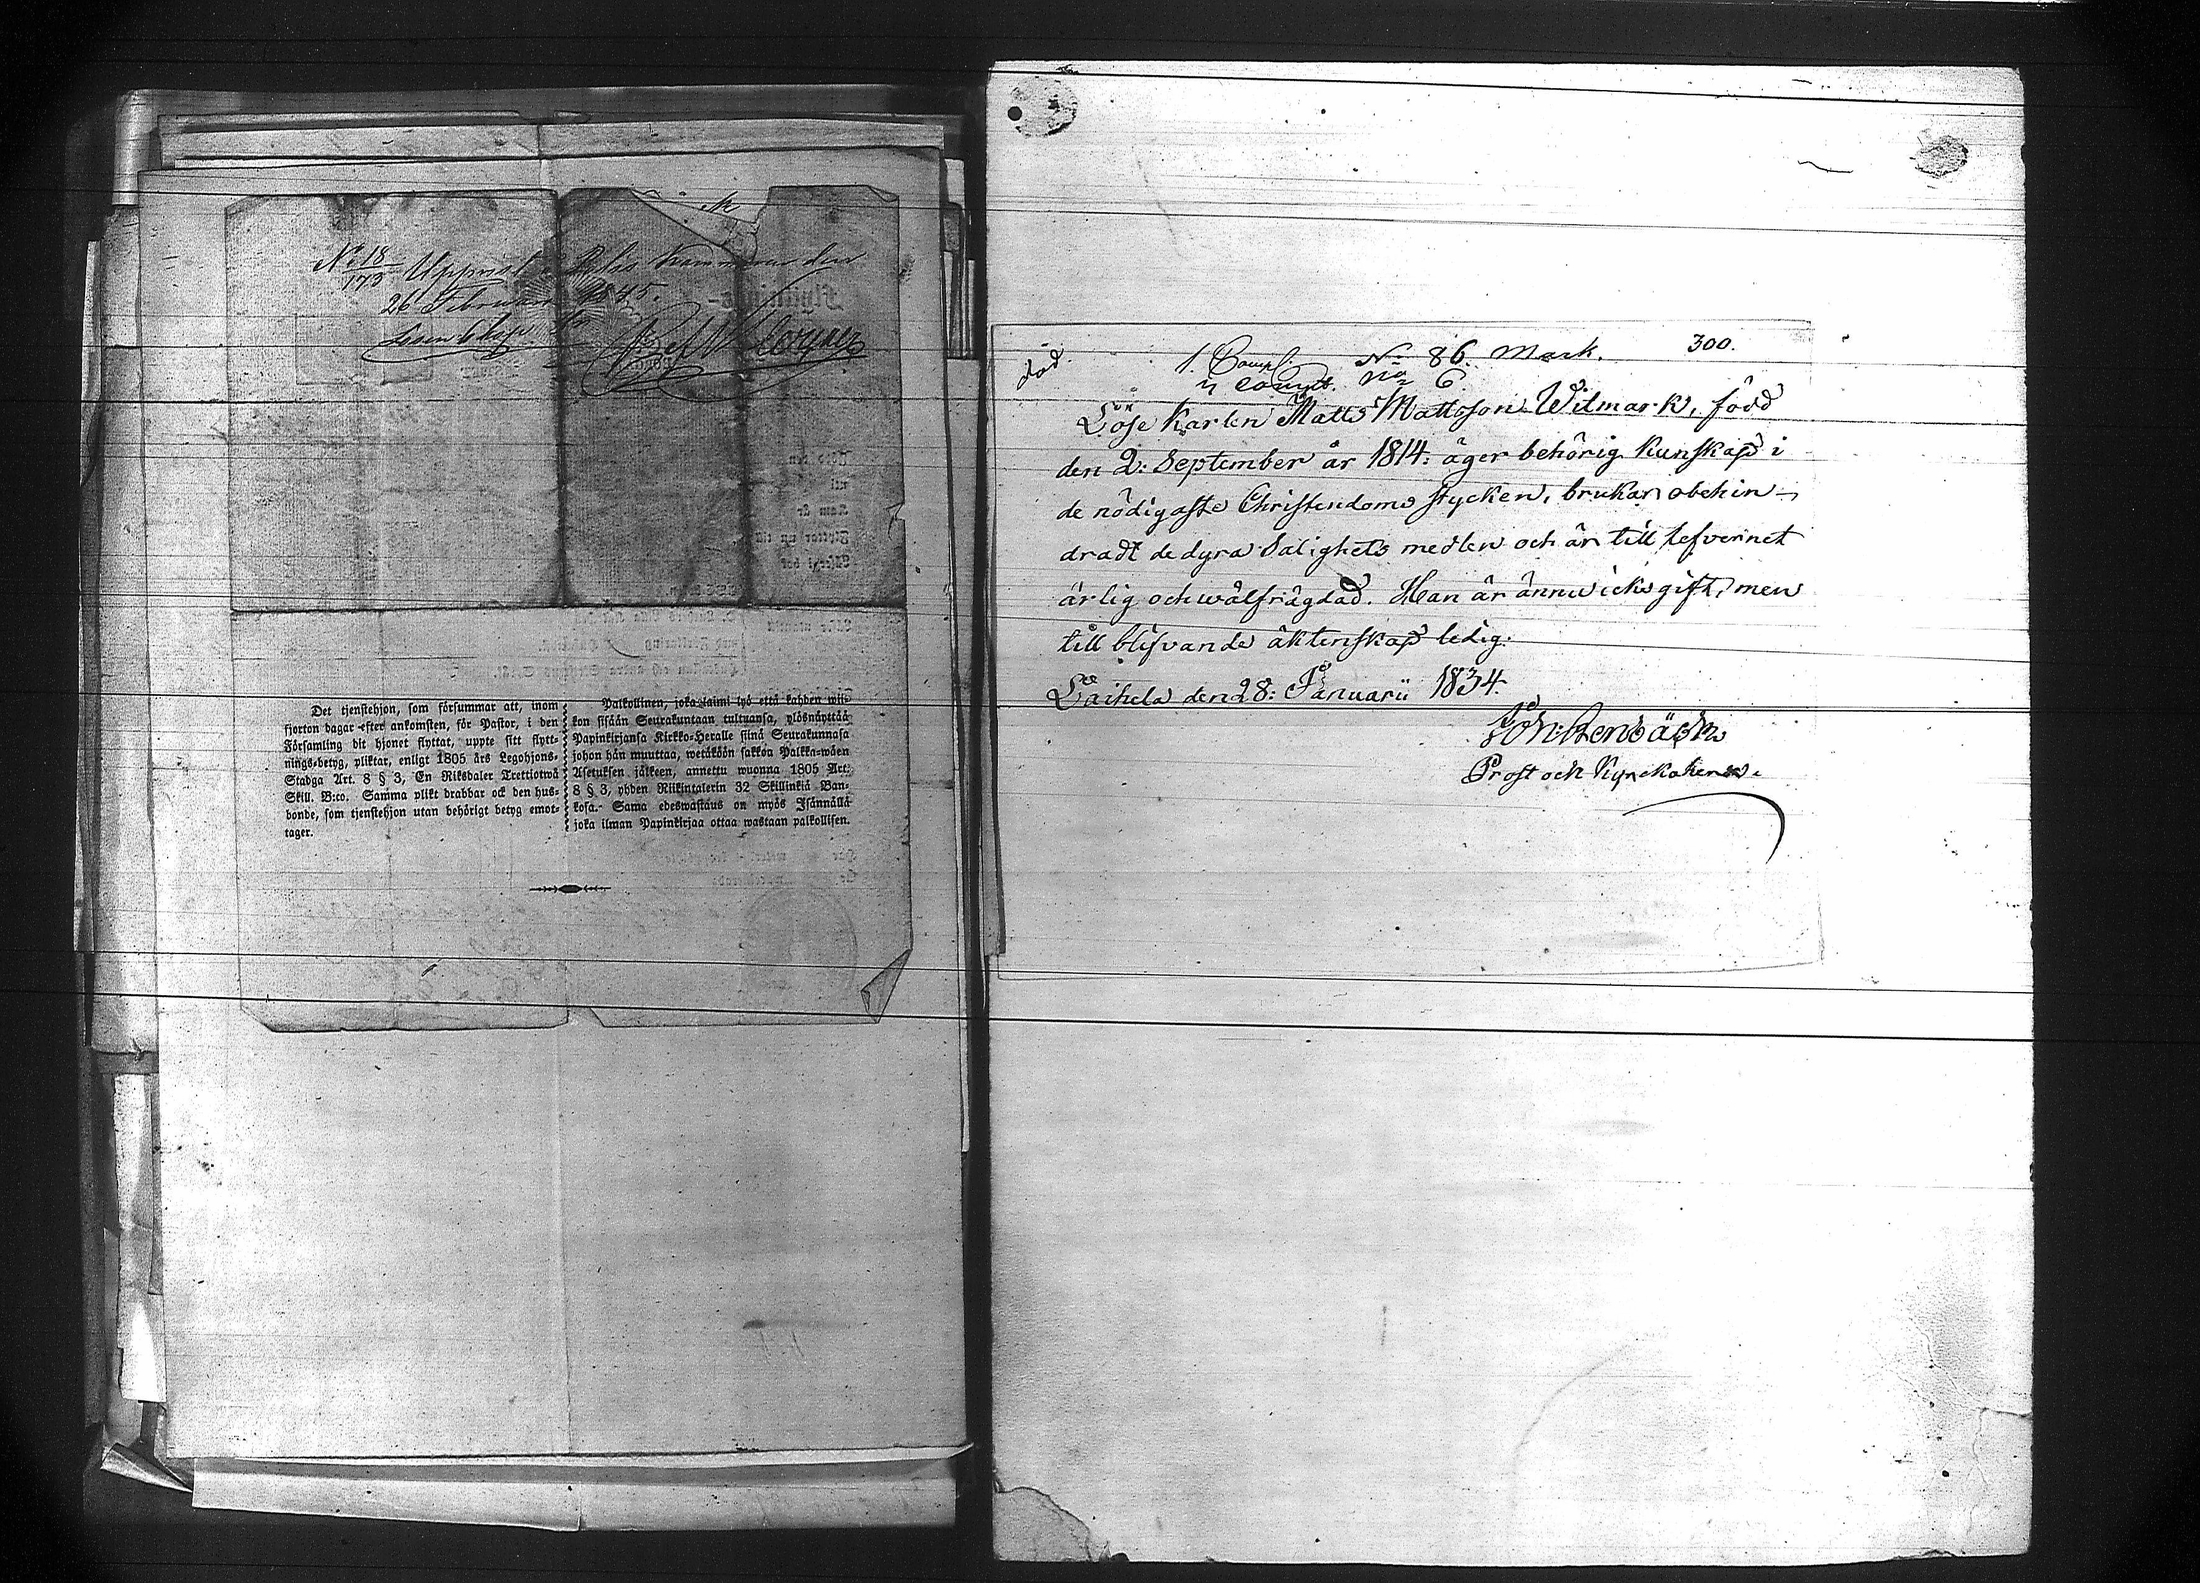 No 18/173 Uppvist i Polis kammaren den
26 Februari 1845.
Det tjenstehjon, som försummar att, inom
fjorton dagar efter ankomsten, för Pastor, i den
Församling dit hjonet flyttat, uppte sitt flytt-
nings-betyg, pliktar, enligt 1805 års Legohjons-
Stadga Art. 8 § 3, En Riksdaler Trettiotwå
Skill. B:co. Samma plikt drabbar ock den hus-
bonde, som tjenstehjon utan behörigt betyg emot-
tager.
Palkollinen, joka laimi lyö että kahden wii-
kon sisään Seurakuntaan tultuansa, ylösnäyttää
Papinkirjansa Kirkko-Heralle siinä Seurakunnasa
johon hän muuttaa, wetäköön sakkoa Palkka-wäen
Asetuksen jälkeen, annettu wuonna 1805 Art:
8 § 3, yhden Riikintalerin 32 Skillinkiä Ban-
kosa. Sama edeswastaus on myös Isännällä
joka ilman Papinkirjaa ottaa wastaan palkollisen.
död.
1. Comp. No 86. Mark. 300.
No 6
Löse Karlen Matts Mattsson Witmark, född
den 2: September år 1814: äger behörig kunskap i
de nödigaste Christendoms stycken, brukar obehin-
dradt de dyra Salighets medlen och är till lefvernet
ärlig och wälfrägdad. Han är ännu icke gift, men
till blifvande äktenskap ledig.
Laihela den 28: Januarii 1834.
Prost och Kyrckoherde.